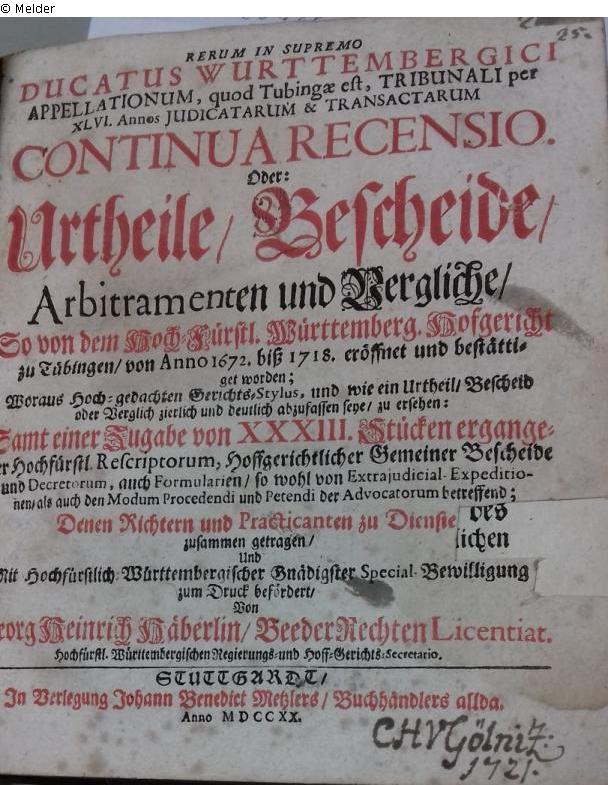 © Melder
25.
RERUM IN SUPREMO
DUCATUS WURTTEMBERGICI
APPELLATIONUM, quod Tubingæ est, TRIBUNALI per
XLVI. Annos JUDICATARUM & TRANSACTARUM
CONTINUA RECENSIO.
Oder:
Urtheile/ Bescheide/
Arbitramenten und Vergliche/
So von dem Hoch-Fürstl. Württemberg. Hofgericht
zu Tübingen/ von Anno 1672. biß 1718. eröffnet und bestätti-
get worden;
Woraus Hoch-gedachten Gerichts-Stylus, und wie ein Urtheil/ Bescheid
oder Verglich zierlich und deutlich abzufassen seye/ zu ersehen:
Samt einer Zugabe von XXXIII. Stücken ergange-
er Hochfürstl. Rescriptorum, Hoffgerichtlicher Gemeiner Bescheide
und Decretorum, auch Formularien/ so wohl von Extrajudicial-Expeditio-
nen/ als auch den Modum Procedendi und Petendi der Advocatorum betreffend;
Denen Richtern und Practicanten zu Dienste
zusammen getragen/ lichen
Und
Mit Hochfürstlich-Württembergischer Gnädigster Special-Bewilligung
zum Druck befördert/
Von
eorg Heinrich Häberlin/ Beeder Rechten Licentiat.
Hochfürstl. Württembergischen Regierungs-und Hoff-Gerichts-Secretario.
STUTTGARDT/
In Verlegung Johann Benedict Metzlers/ Buchhändlers allda.
Anno MDCCXX.
CHVGölnitz.
1721.